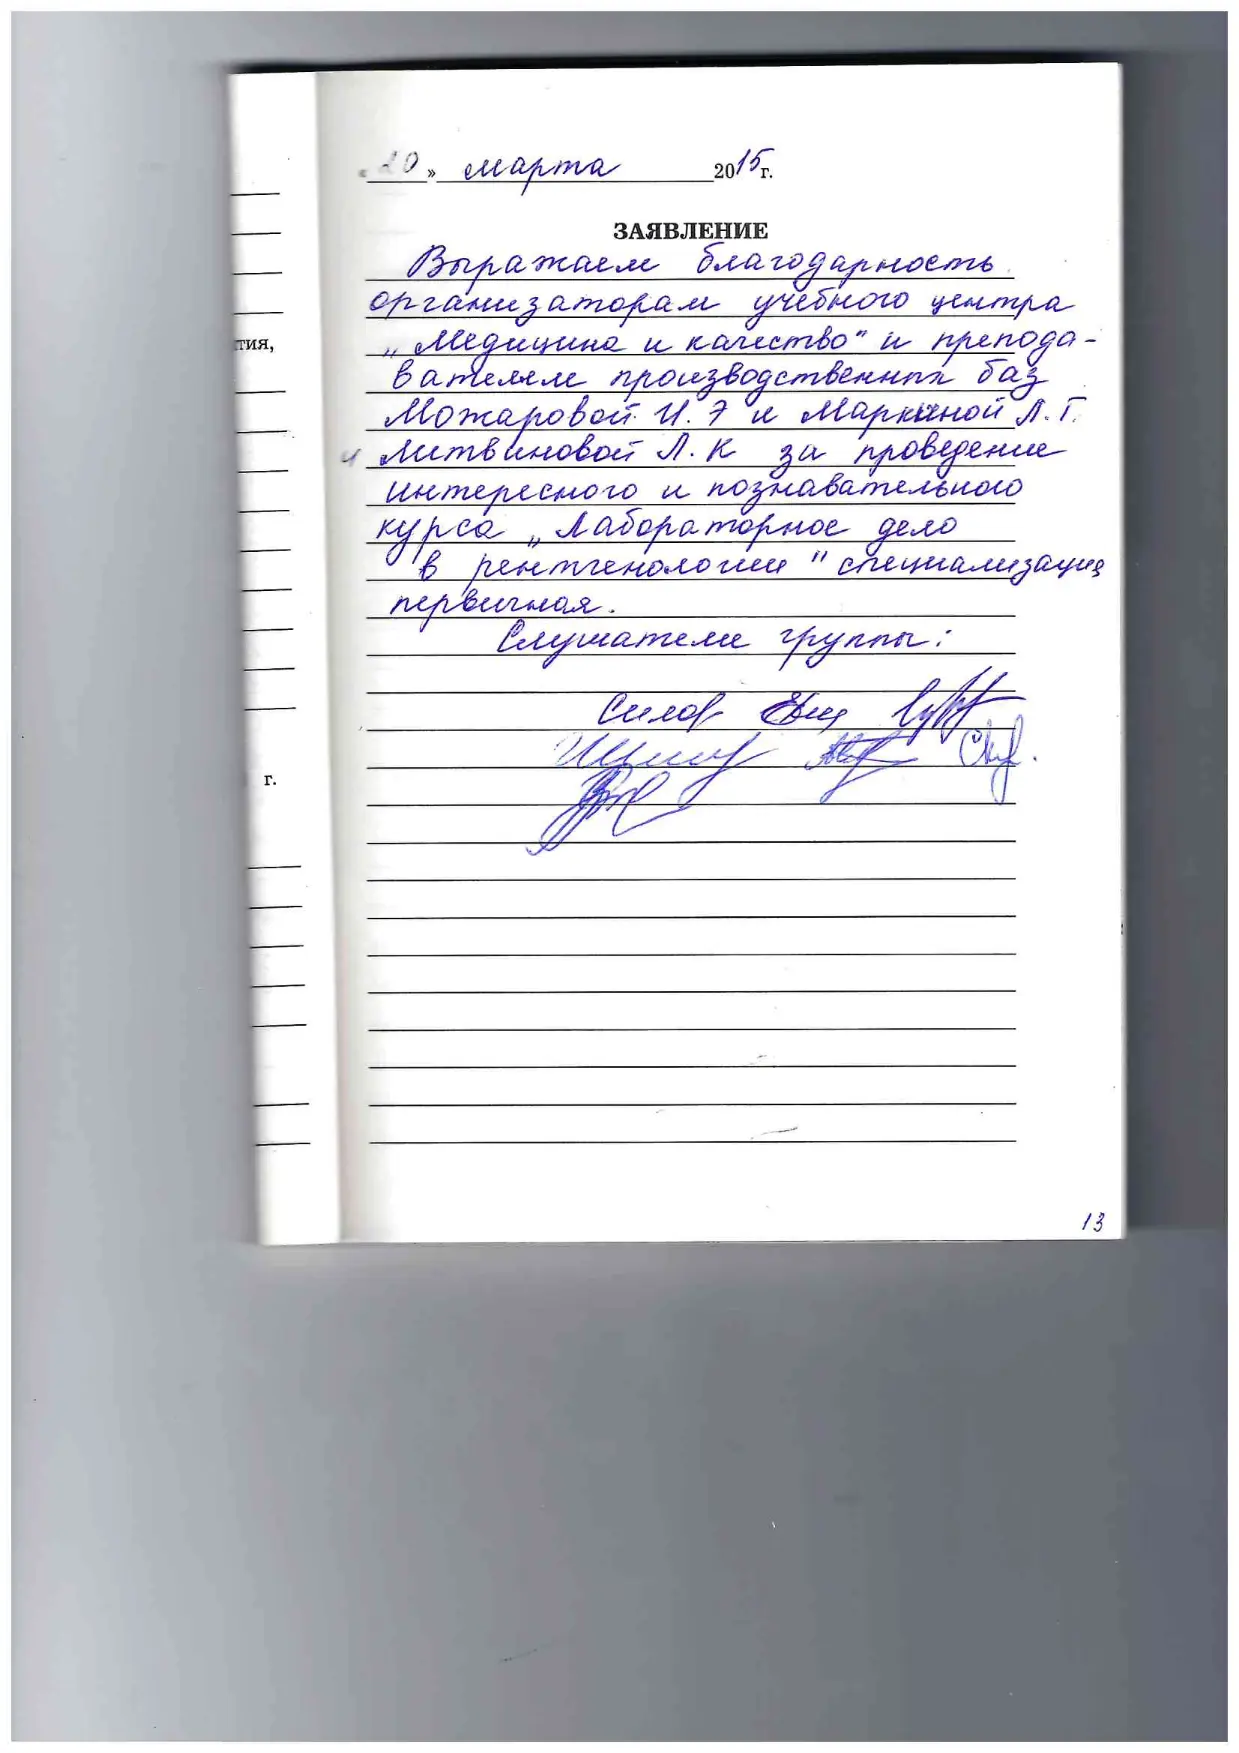 «20» марта 2015 г.
ЗАЯВЛЕНИЕ
Выражаем благодарность
организаторам учебного центра
„Медицина и качество" и препода-
тия,
вателям производственных баз
Можаровой И.Э и Маркиной Л.Г.
и Литвиновой Л.К за проведение
интересного и познавательного
курса „Лабораторное дело
в рентгенологии" специализация
первичная.
Слушатели группы:
г.
13